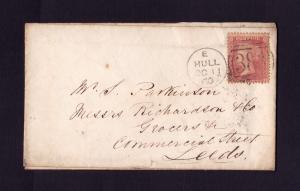 E
HULL
Mr. S. Parkinson
Messrs Richardson & Co
Grocers &c
Commercial Street
Leeds.